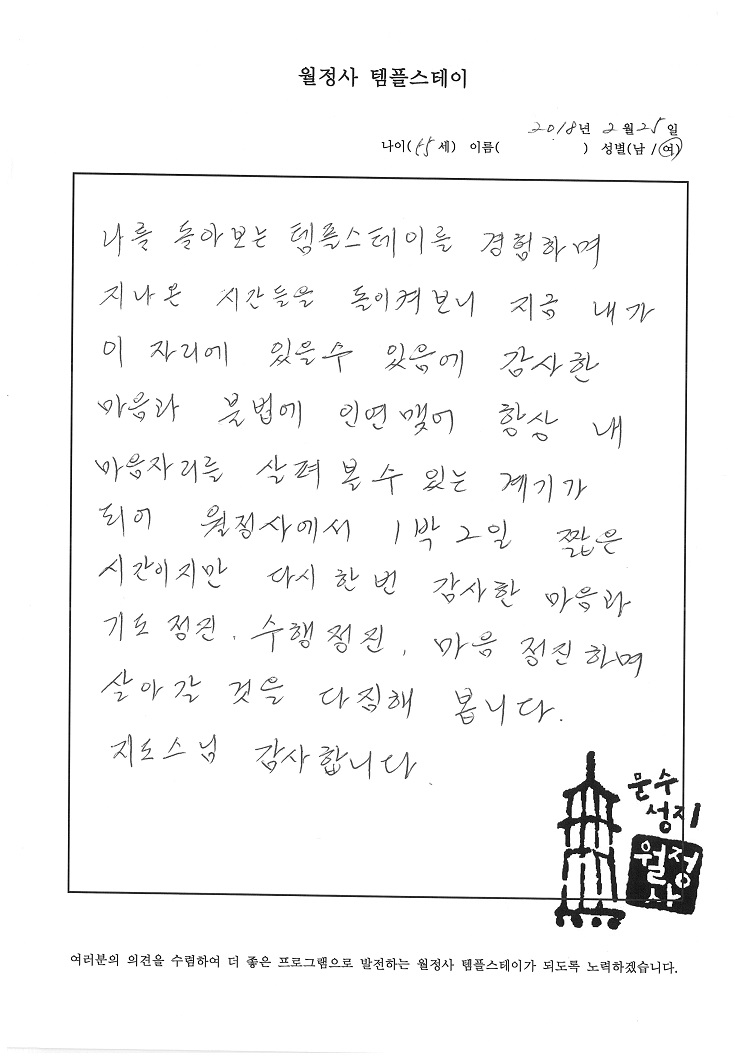 월정사 템플스테이
2018년 2월 25일
나이(55세) 이름( ) 성별(남/여)
나를 돌아보는 템플스테이를 경험하며
지나온 시간들을 돌이켜보니 지금 내가
이 자리에 있을수 있음에 감사한
마음과 불법에 인연맺어 항상 내
마음자리를 살펴 볼 수 있는 계기가
되어 월정사에서 1박 2일 짧은
시간이지만 다시 한 번 감사한 마음과
기도 정진, 수행정진, 마음 정진하며
살아갈 것을 다짐해 봅니다.
지도스님 감사합니다.
문수
성지
월정
사
여러분의 의견을 수렴하여 더 좋은 프로그램으로 발전하는 월정사 템플스테이가 되도록 노력하겠습니다.